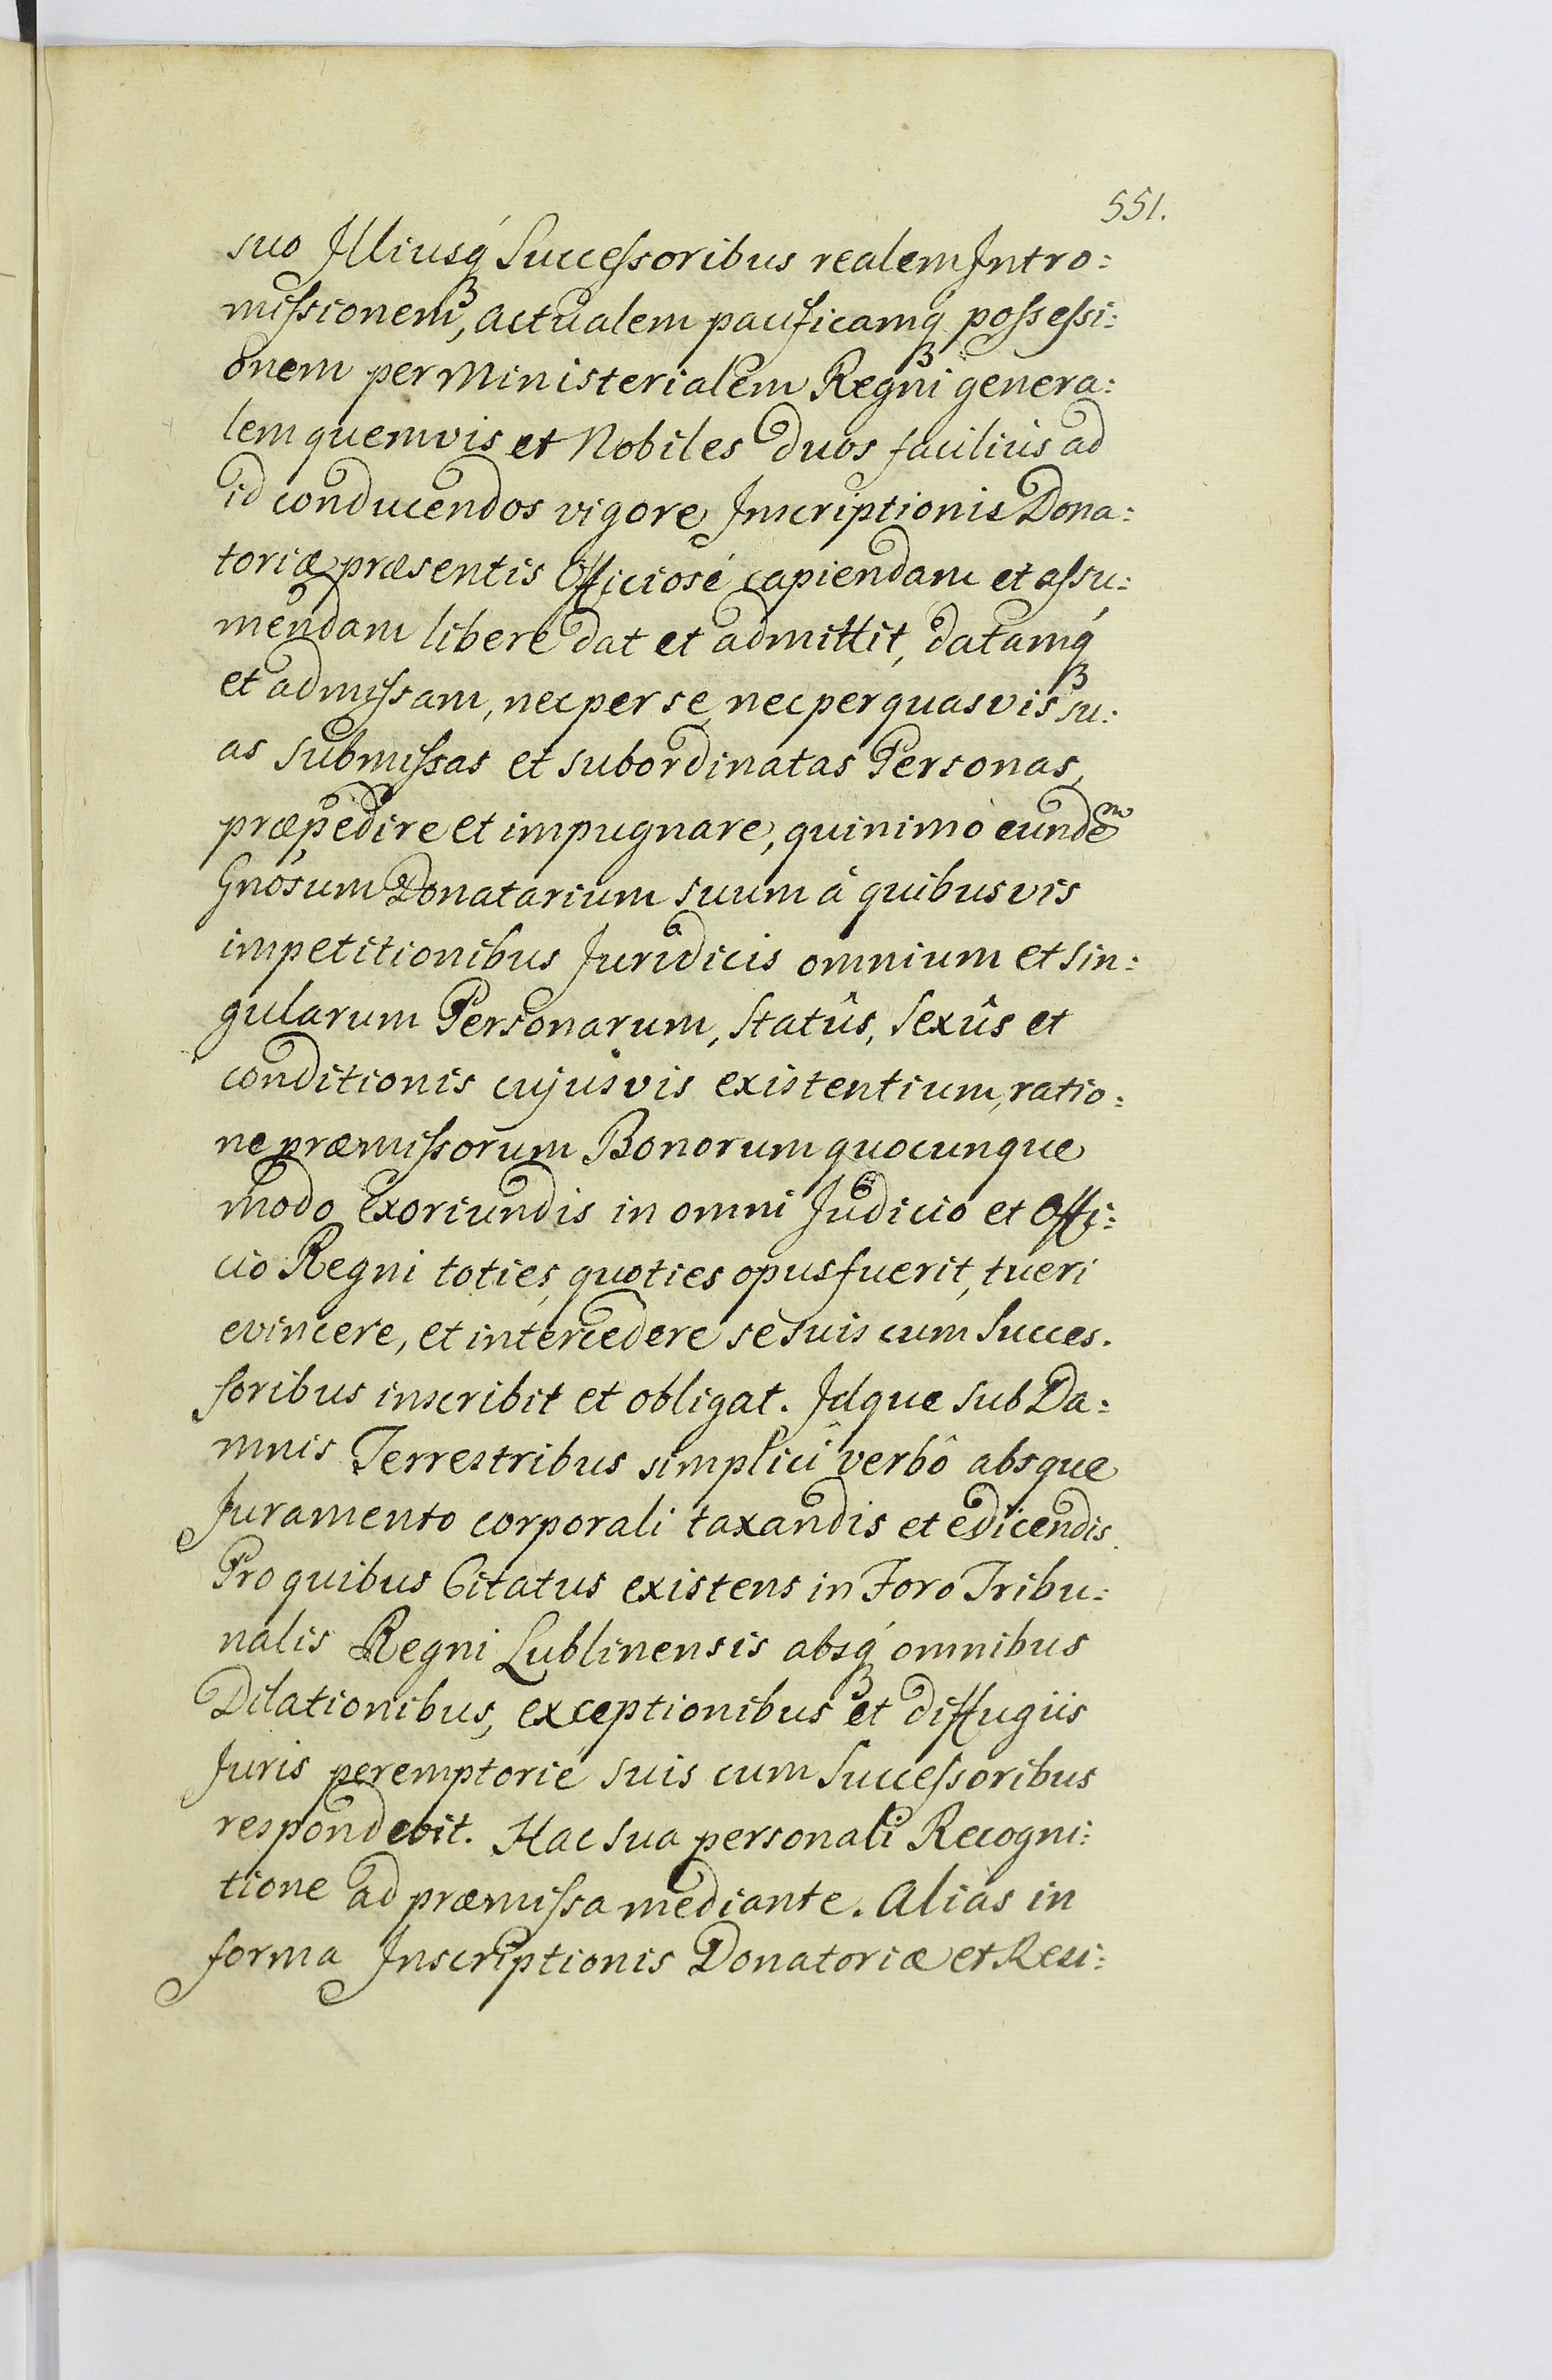 551.
suo Illiusq́ Successoribus realem Intro:
missionem, actualem pacificamq́ possessi:
onem per Ministerialem Regni genera:
lem quemvis et Nobiles duos faciliùs ad
id conducendos vigore Inscriptionis Dona:
toriæ præsentis Officiosé capiendam et assu:
mendam libere dat et admittit, datamq́
et admissam, nec per se, nec per quasvis su:
as submissas et subordinatas Personas,
præpedire et impugnare, quinimò eundeᵐ
Gnosum Donatarium suum à quibusvis
impetitionibus Juridicis omnium et sin:
gularum Personarum, Statûs, Sexûs et
conditionis cujusvis existentium, ratio:
ne præmissorum Bonorum quocunque
modo exoriundis in omni Judicio et Offi:
cio Regni toties, quoties opus fuerit, tueri
evincere, et intercedere se suis cum Succes.
soribus inscribit et obligat. Idque sub Da:
mnis Terrestribus simplici verbô absque
Juramento corporali taxandis et edicendis.
Pro quibus Citatus existens in Foro Tribu:
nalis Regni Lublinensis absq́ omnibus
Dilationibus, exceptionibus et diffugiis
Juris peremptorié suis cum Successoribus
respondebit. Hac sua personali Recogni:
tione ad præmissa mediante. Aliàs in
forma Inscriptionis Donatoriæ et Resi: